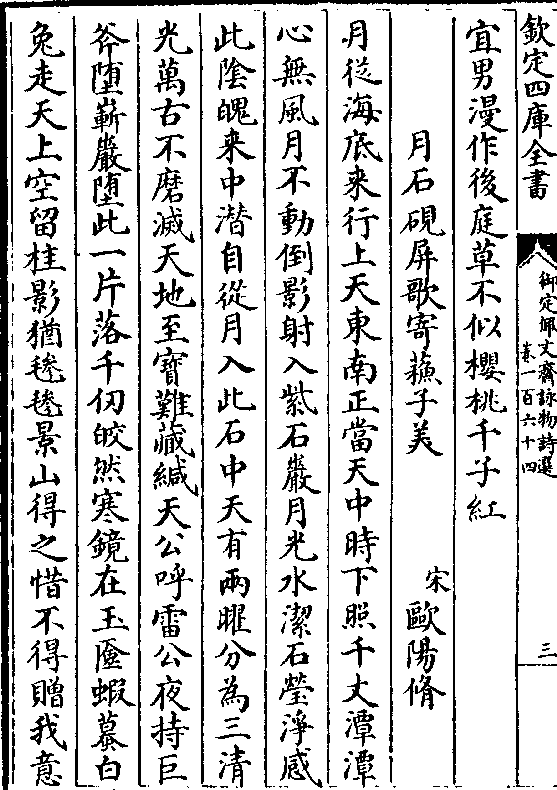 欽定四庫全書
御定佩文齋詠物詩選
卷一百六十四
三
宜男漫作後庭草不似櫻桃千子紅
月石硯屏歌寄蘇子美
宋
歐陽脩
月從海底來行上天東南正當天中時下照千丈潭潭
心無風月不動倒影射入紫石巖月光水潔石瑩淨感
此陰魄来中潛自從月入此石中天有兩曜分為三清
光萬古不磨滅天地至寶難藏緘天公呼雷公夜持巨
斧墮嶄巖墮此一片落千仞皎然寒鏡在玉匳蝦蟇白
兔走天上空留桂影猶毿毿景山得之惜不得贈我意